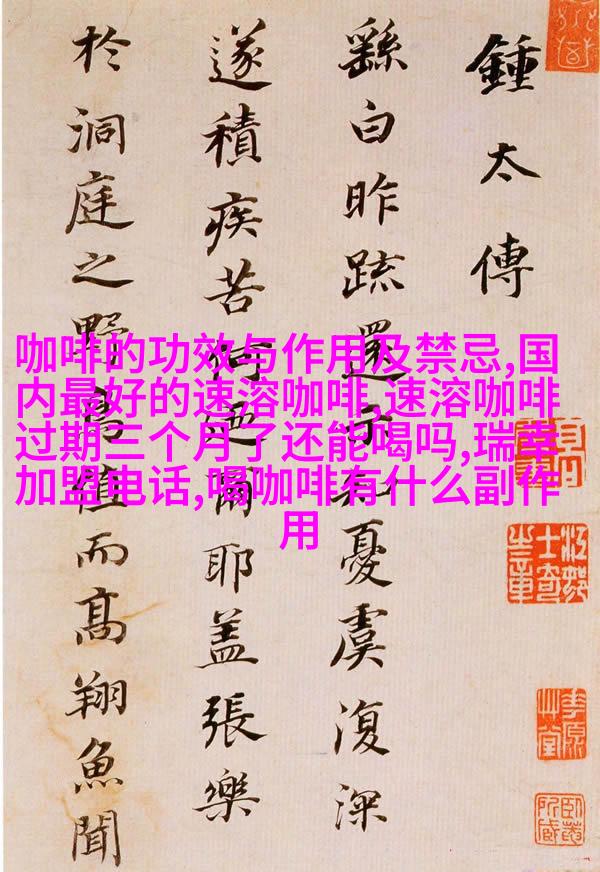 鍾太傅
繇白昨疏還示知憂虞復深
遂積疾苦何迺爾耶蓋張樂
於洞庭之野鳥值而高翔魚聞
咖啡的功效与作用及禁忌,国
内最好的速溶咖啡,速溶咖啡
过期三个月了还能喝吗,瑞幸
加盟电话,喝咖啡有什么副作
用